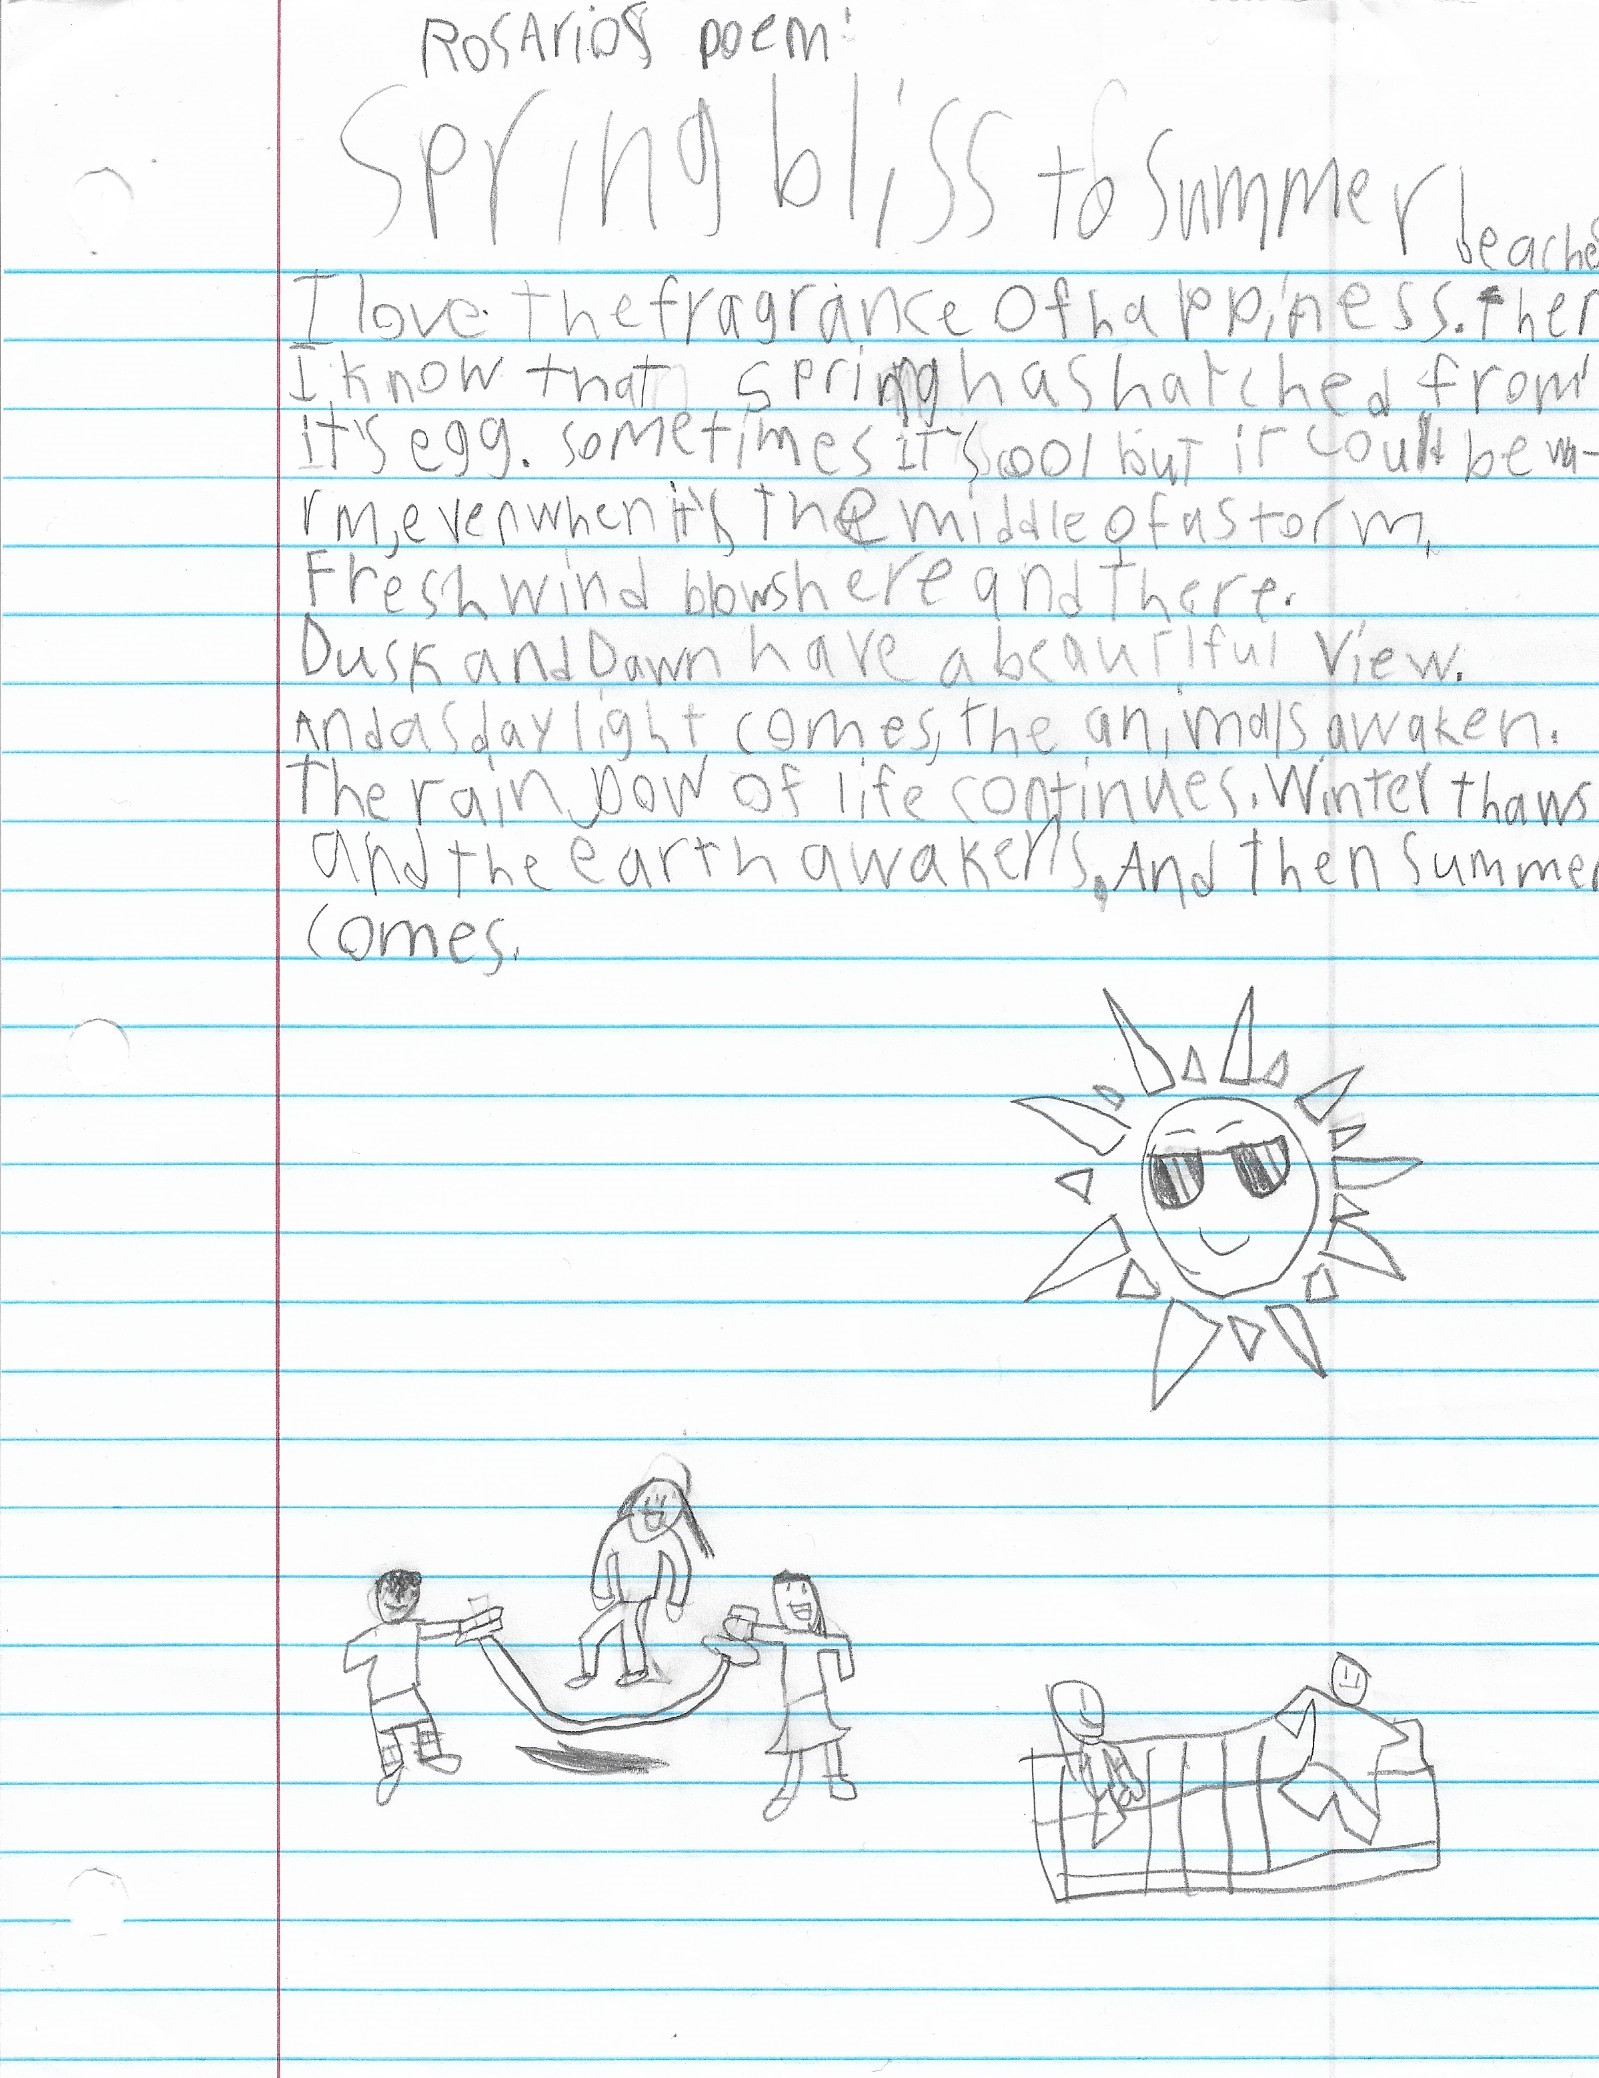 Rosarios poem:
Spring bliss to summer beaches
I love the fragrance of happiness. Then
I know that spring has hatched from
it's egg. sometimes it's cool but it could be wa-
rm, even when it's the middle of a storm.
Fresh wind blows here and there.
Dusk and Dawn have a beautiful view.
And as daylight comes, the animals awaken.
The rainbow of life continues. Winter thaws
and the earth awakens. And then summer
comes.